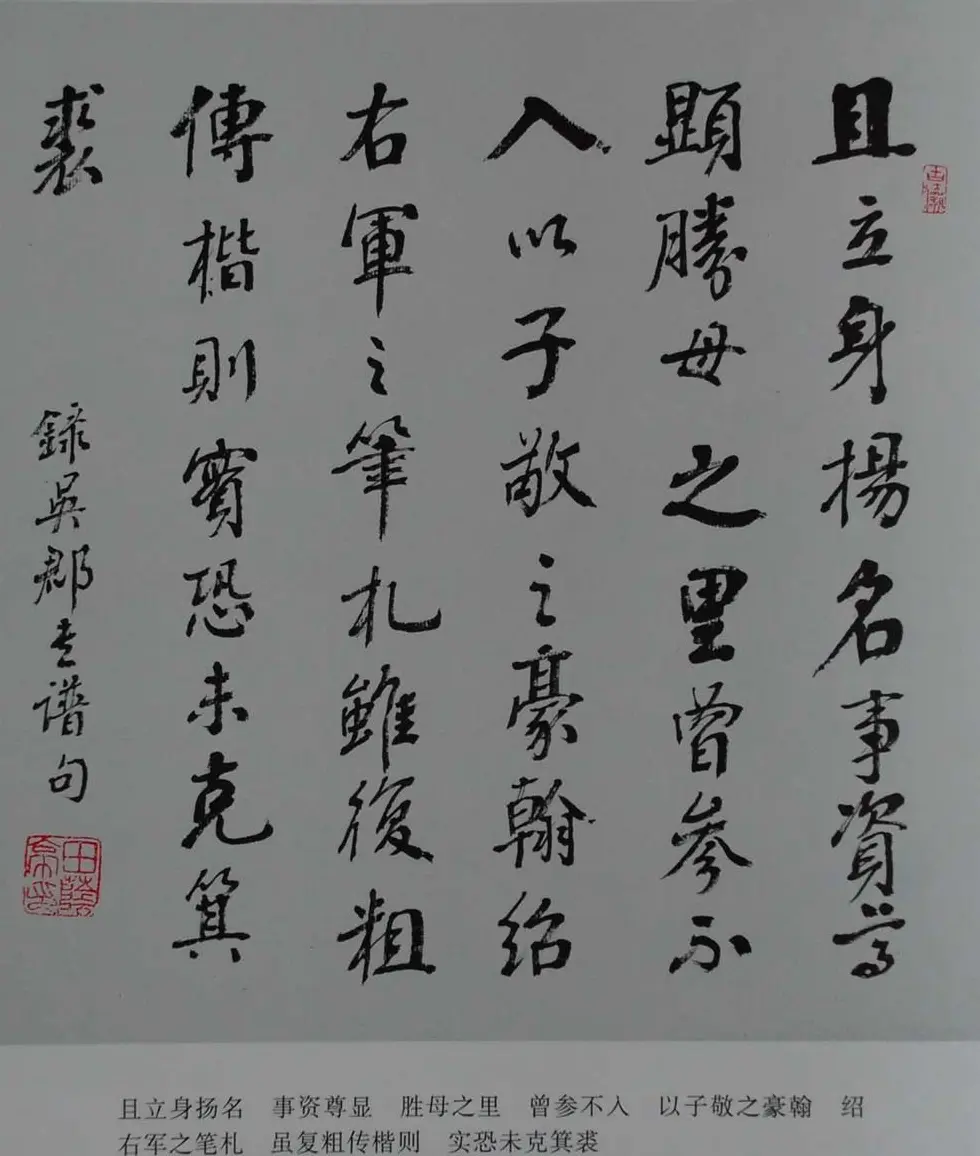 且立身揚名事資尊
顕勝母之里曾参不
入以子敬之豪翰紹
右軍之筆札雖復粗
傳楷則實恐未克箕
裘
錄吳郡書譜句
且立身扬名 事资尊显 胜母之里 曾参不入 以子敬之豪翰 绍
右军之笔札 虽复粗传楷则 实恐未克箕裘